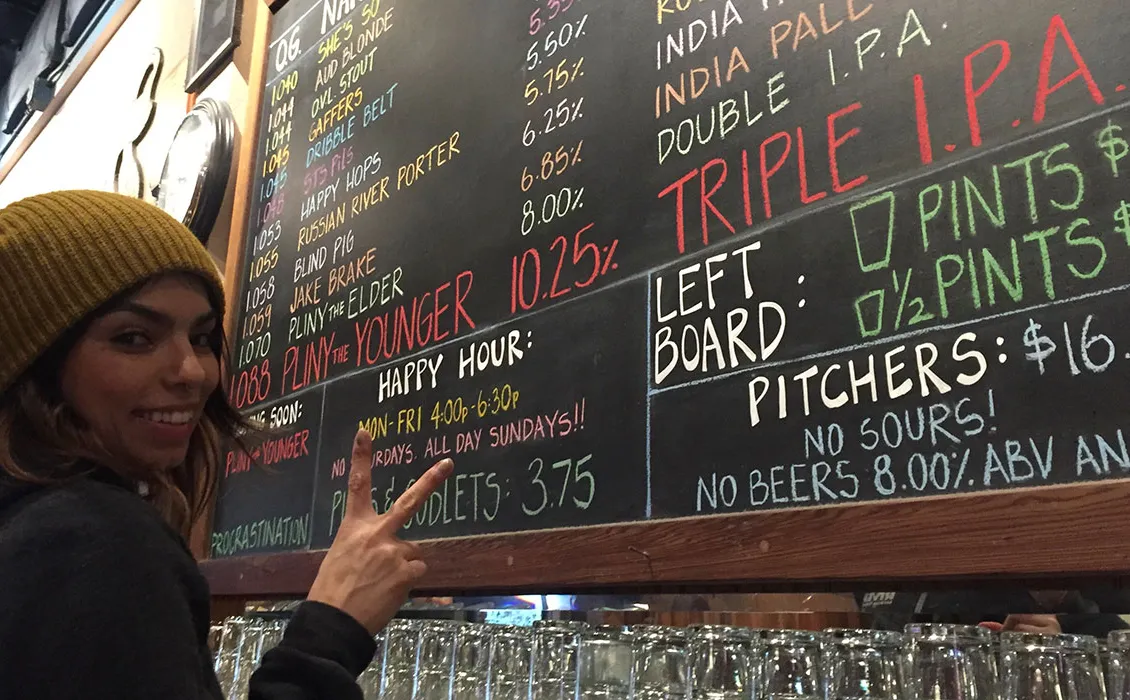 O.G. NAM
1.040 SHE'S SO
1.044 AUD BLONDE
1.044 OVL STOUT
1.045 GAFFERS
1.045 DRIBBLE BELT
1.045 STS PILS
1.053 HAPPY HOPS
1.055 RUSSIAN RIVER PORTER
1.058 BLIND PIG
1.059 JAKE BRAKE
1.070 PLINY THE ELDER
1.088 PLINY THE YOUNGER 10.25%
5.50%
5.75%
6.25%
6.85%
8.00%
INDIA
INDIA PALE
DOUBLE I.P.A.
TRIPLE I.P.A.
LEFT BOARD:
PINTS $
1/2 PINTS $
PITCHERS: $16.
NO SOURS!
NO BEERS 8.00% ABV AN
SOON:
PLINY THE YOUNGER
PROCRASTINATION
HAPPY HOUR:
MON-FRI 4:00P-6:30P
NO SATURDAYS. ALL DAY SUNDAYS!!
& GOBLETS: 3.75